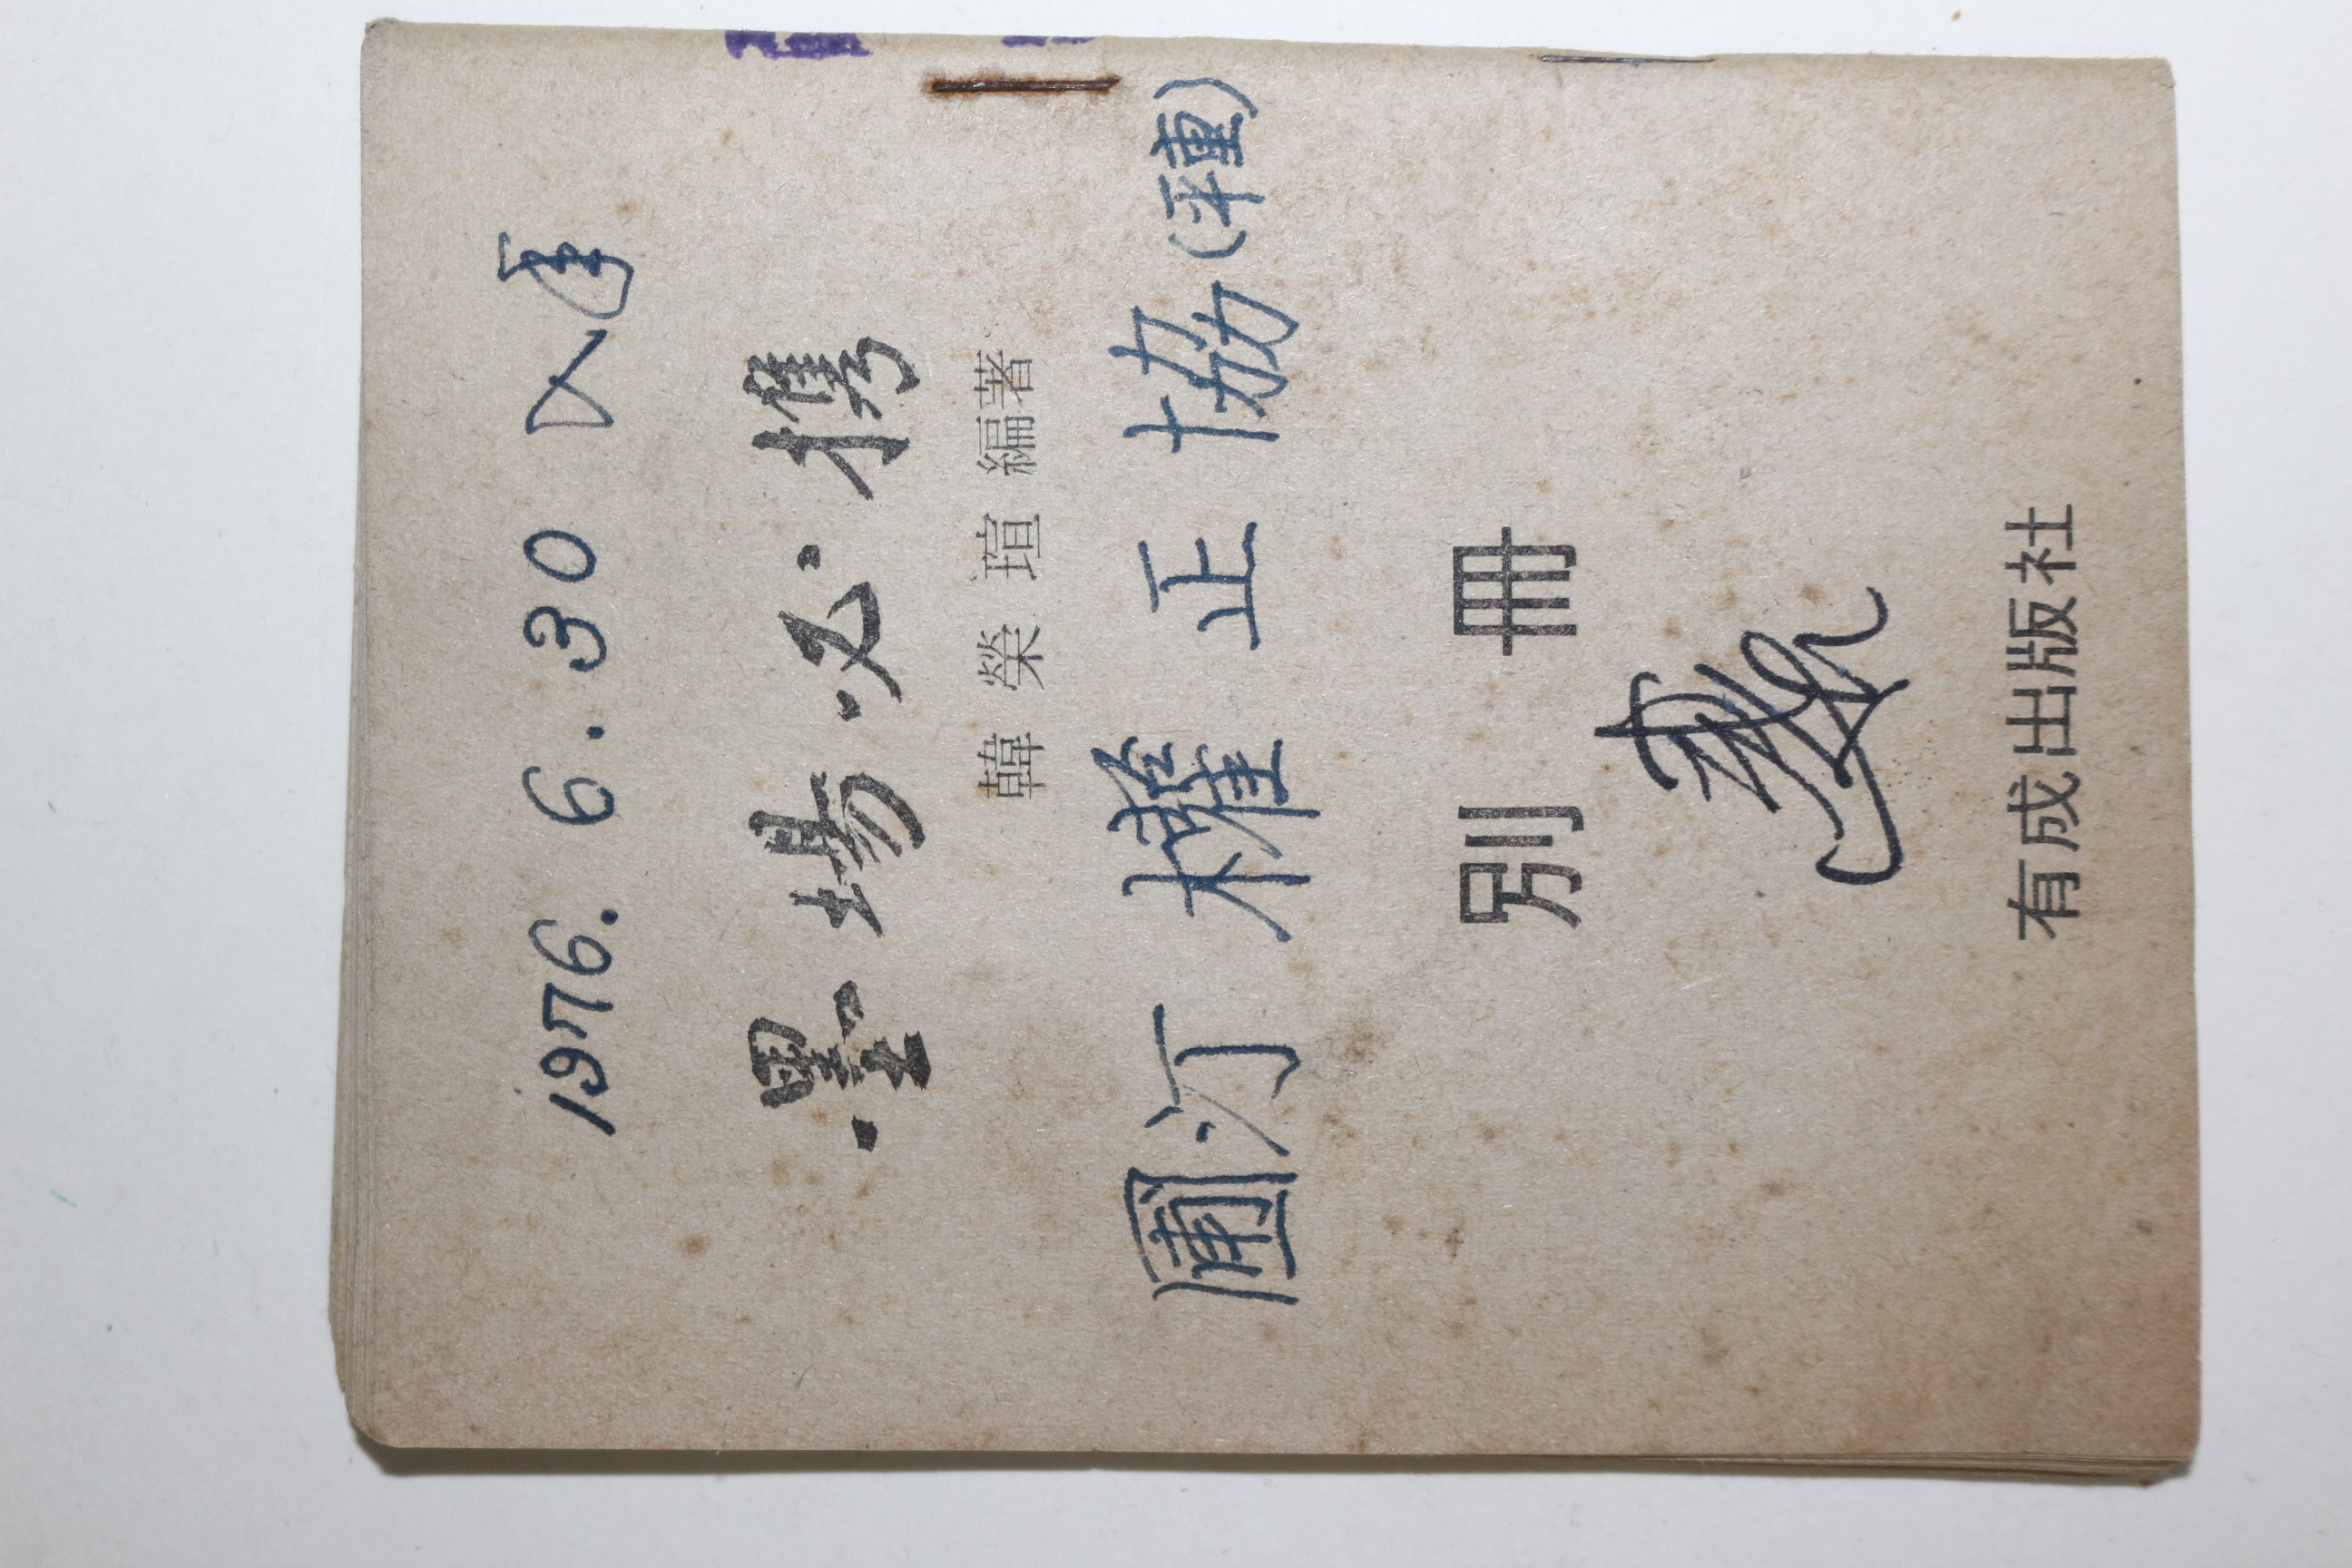 1976. 6. 30 入庫
墨場必携
韓榮瑄編著
圃汀 權正協 (平重)
別冊
有成出版社